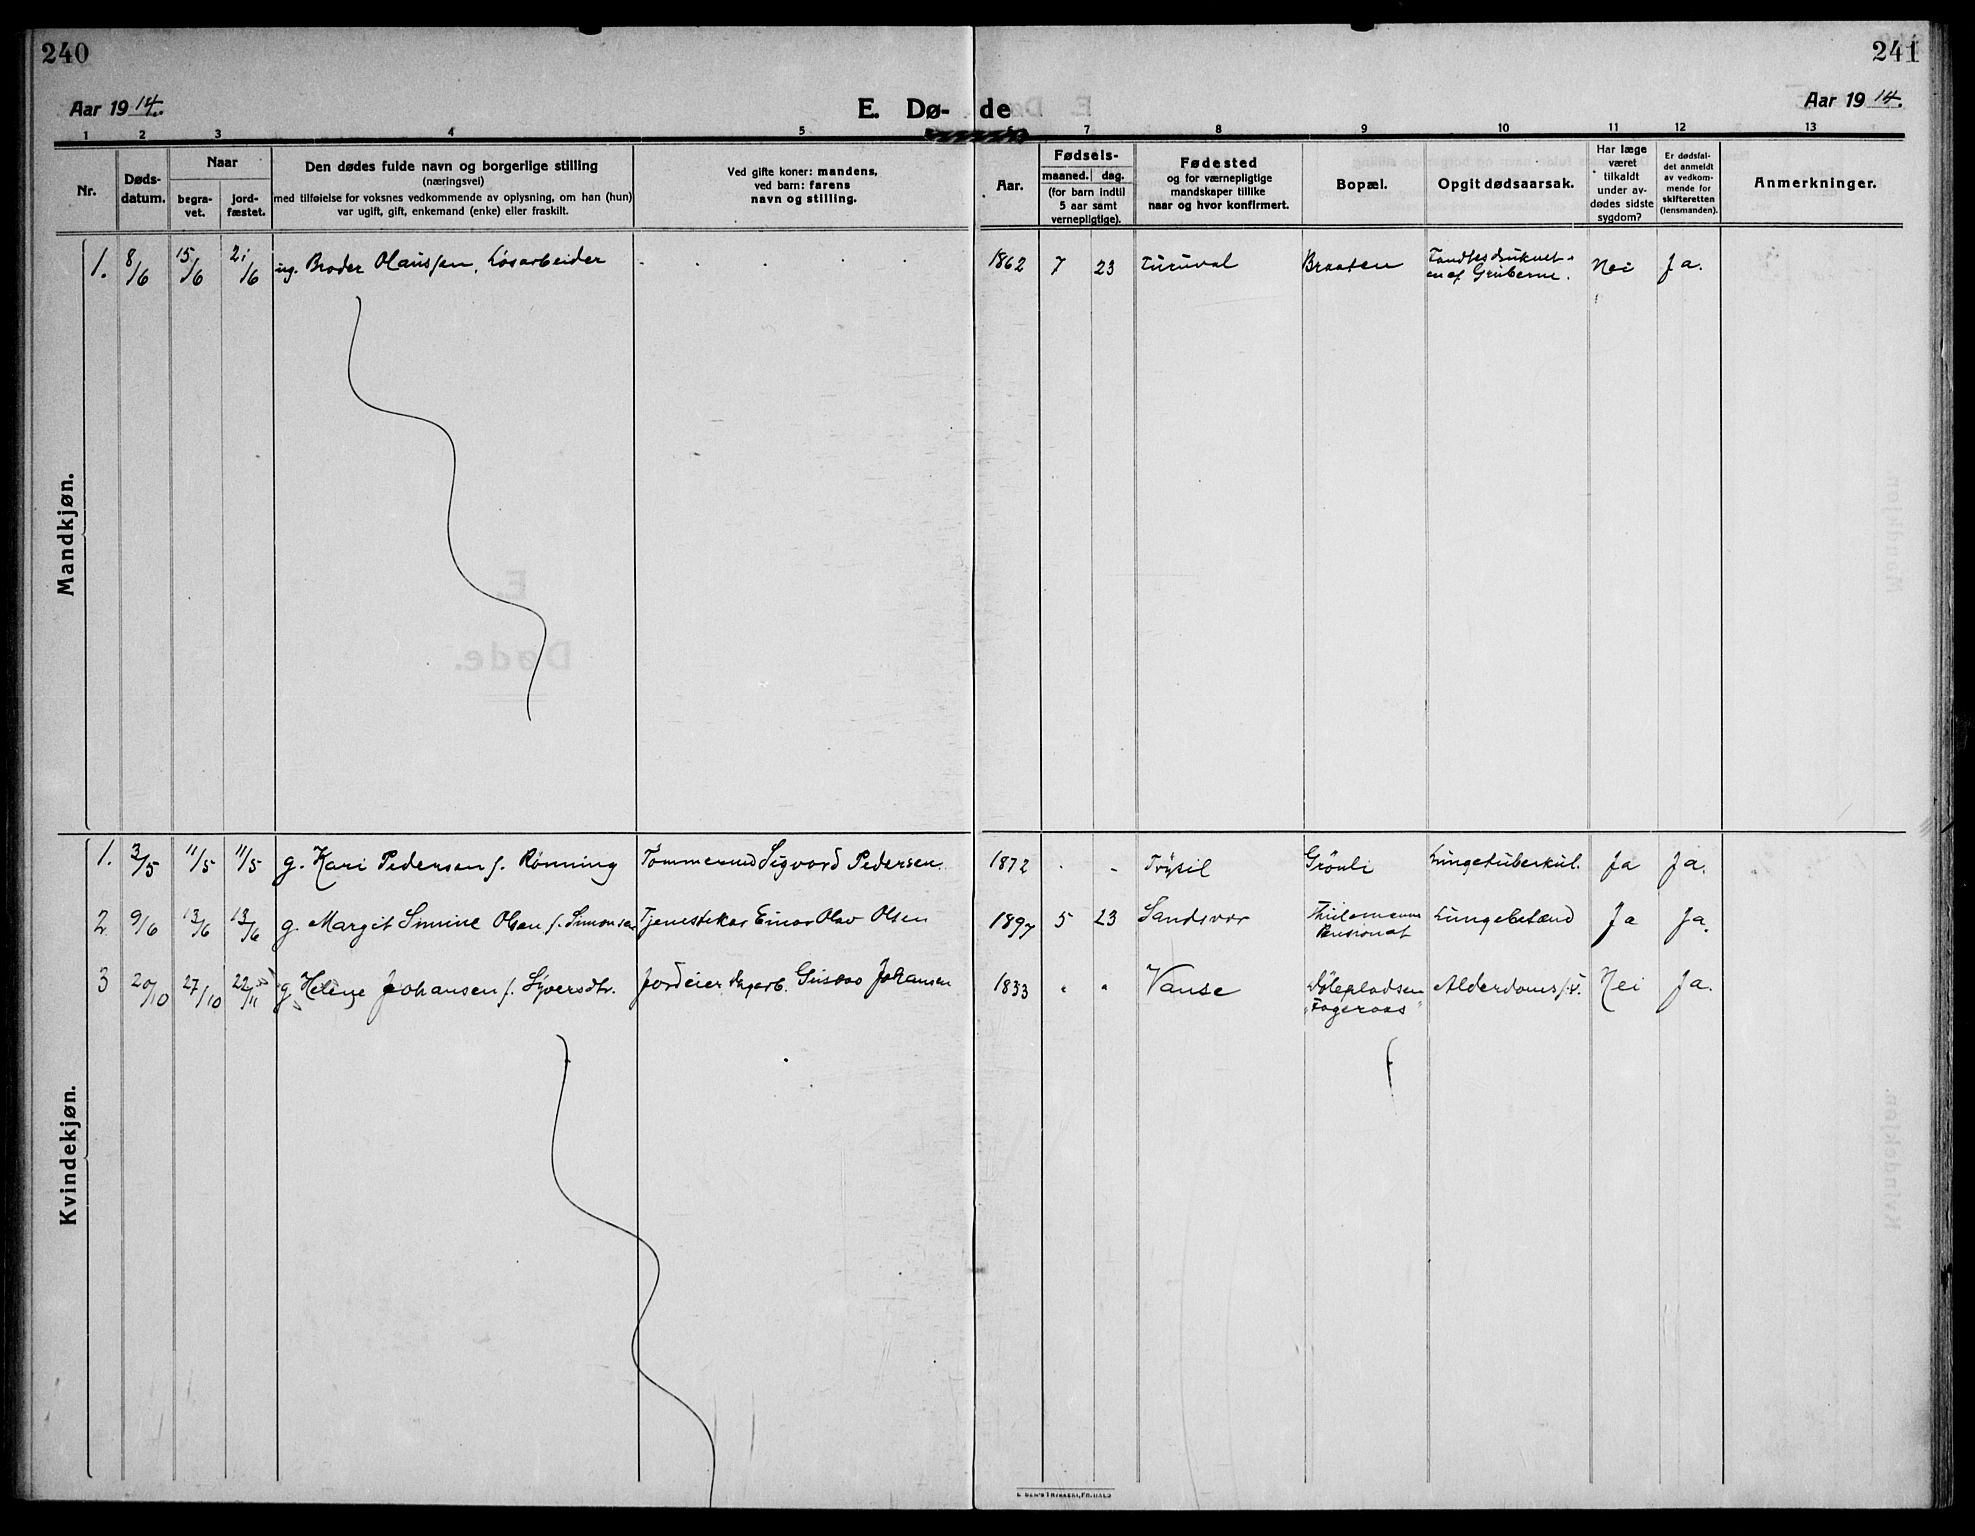 240
241
Aar 1914.
E. Dø- de
Aar 1914.
1 2 3 4 5 6 7 8 9 10 11 12 13
Nr.
Døds-
datum.
Naar
begra-
vet.
jord-
fæstet.
Den dødes fulde navn og borgerlige stilling
(næringsvei)
med tilføielse for voksnes vedkommende av oplysning, om han (hun)
var ugift, gift, enkemand (enke) eller fraskilt.
Ved gifte koner: mandens,
ved barn: farens
navn og stilling.
Aar.
Fødsels-
maaned. dag.
(for barn indtil
5 aar samt
vernepligtige).
Fødested
og for værnepligtige
mandskaper tillike
naar og hvor konfirmert.
Bopæl.
Opgit dødsaarsak.
Har læge
været
tilkaldt
under av-
dødes sidste
sygdom?
Er dødsfal-
det anmeldt
av vedkom-
mende for
skifteretten
(lensmanden).
Anmerkninger.
Mandkjøn.
1. 8/6 15/6 21/6 ug. Broder Olaussen, Løsarbeider 1862 7 23 Braaten Nei Ja.
Kvindekjøn.
1. 3/5 11/5 11/5 g. Kari Pedersen f. Rønning Tømmermd Sigvard Pedersen. 1872 . - Trysil Grönli Lungetuberkul. Ja Ja.
2. 9/6 13/6 13/6 g. Margit Simine Olsen f. Simonsen Tjenestekar Einar Olav Olsen 1897 5 23 Sandsvær Lungebetænd Ja Ja.
Pensionat
3 20/10 27/10 22/11 g. Helene Johansen f. Syversdtr. Jordeier Gustav Johansen 1833 " " Vanse Alderdoms s.v. Nei Ja.
"Fageraas"